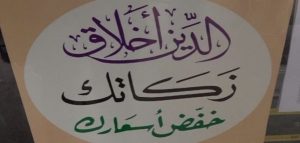 الدين أخلاق
زكاتك
خفض أسعارك